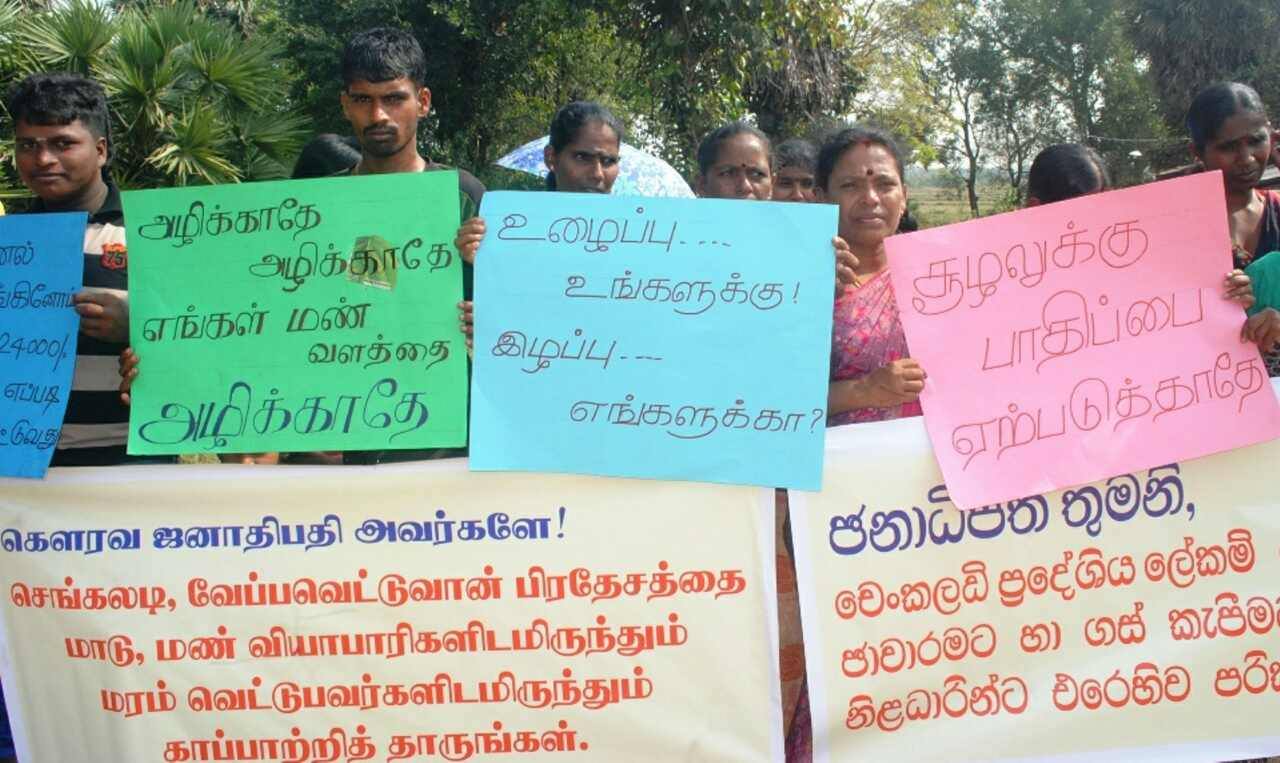 24000/-
எப்படி
அழிக்காதே
அழிக்காதே
எங்கள் மண்
வளத்தை
அழிக்காதே
உழைப்பு....
உங்களுக்கு!
இழப்பு....
எங்களுக்கா?
சூழலுக்கு
பாதிப்பை
ஏற்படுத்தாதே
கௌரவ ஜனாதிபதி அவர்களே!
செங்கலடி, வேப்பவெட்டுவான் பிரதேசத்தை
மாடு, மண் வியாபாரிகளிடமிருந்தும்
மரம் வெட்டுபவர்களிடமிருந்தும்
காப்பாற்றித் தாருங்கள்.
ජනාධිපති තුමනි,
චෙංකලඩි ප්‍රදේශිය ලේකම්
ජාවාරමට හා ගස් කැපීමට
නිළධාරින්ට එරෙහිව